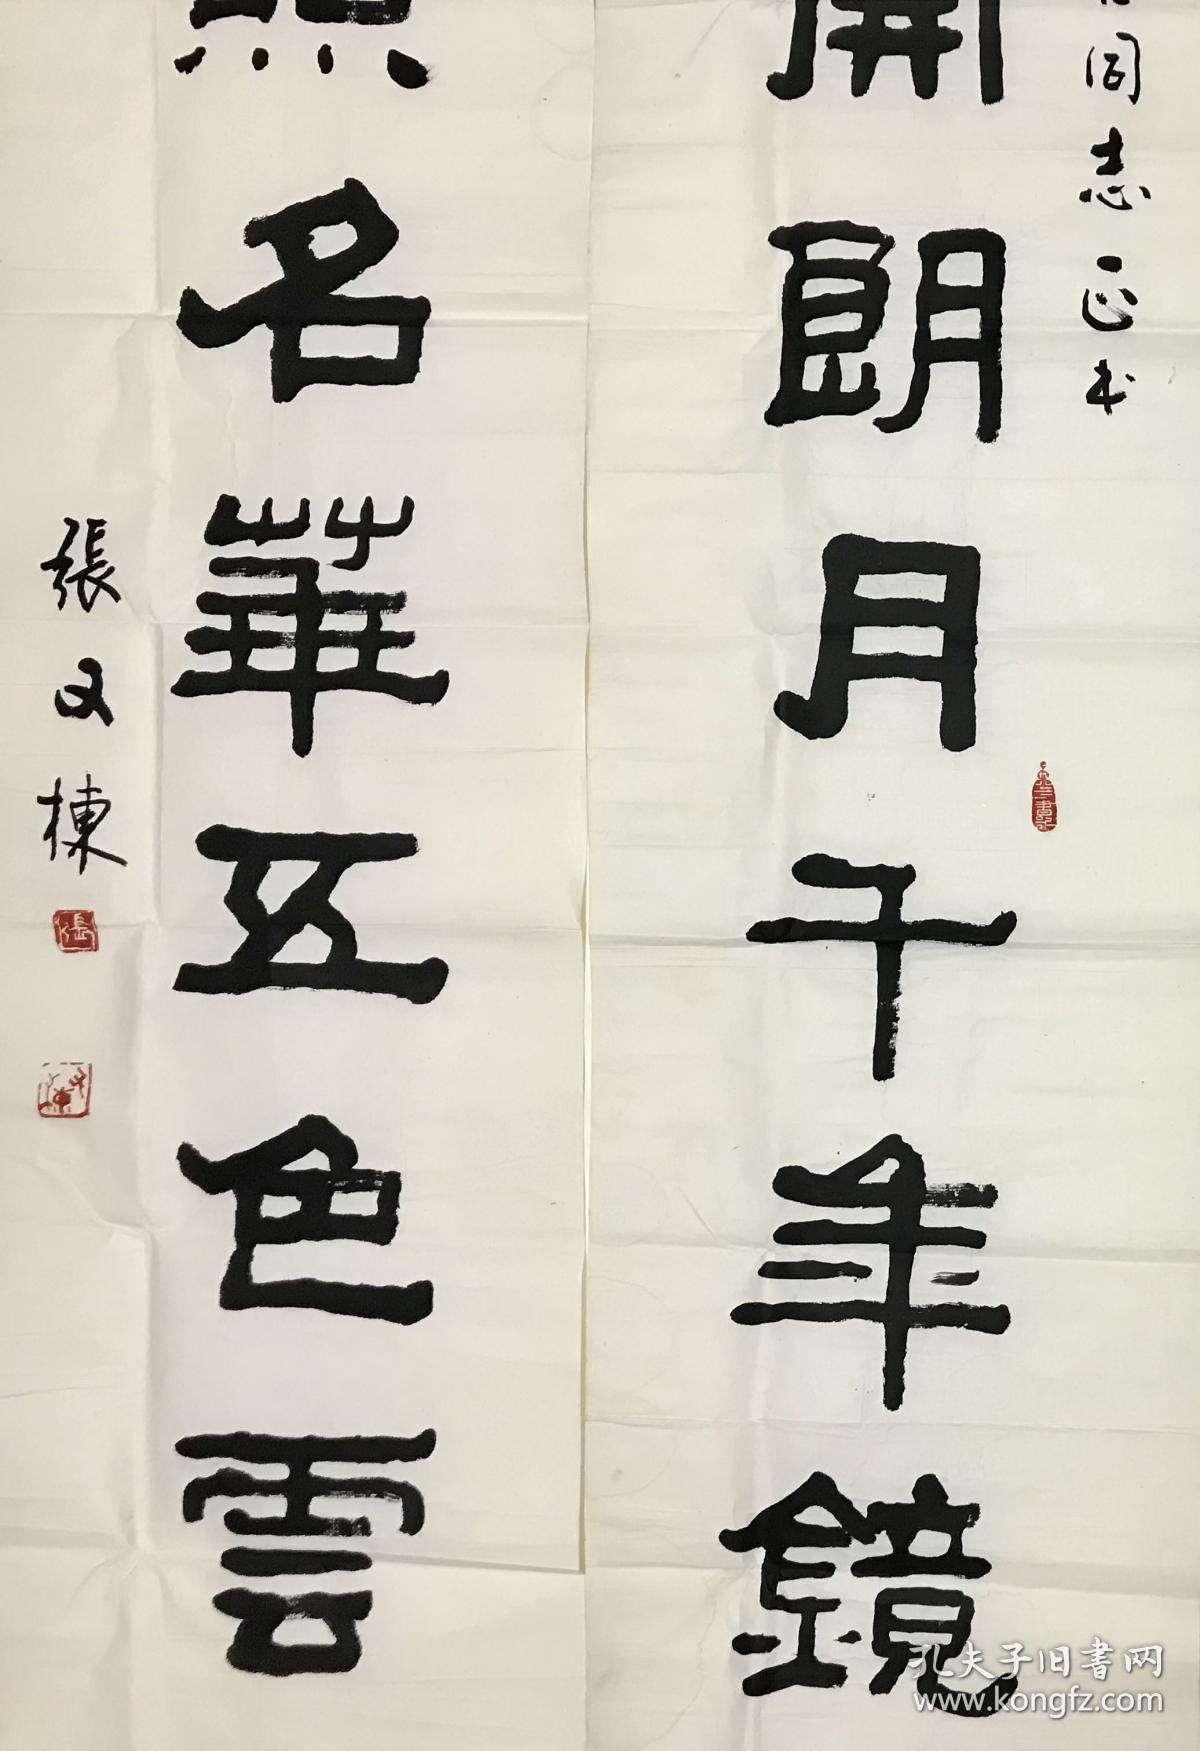 同志正书
開朗月千年鏡
名華五色雲
張又棟
張
孔夫子旧書网
www.kongfz.com